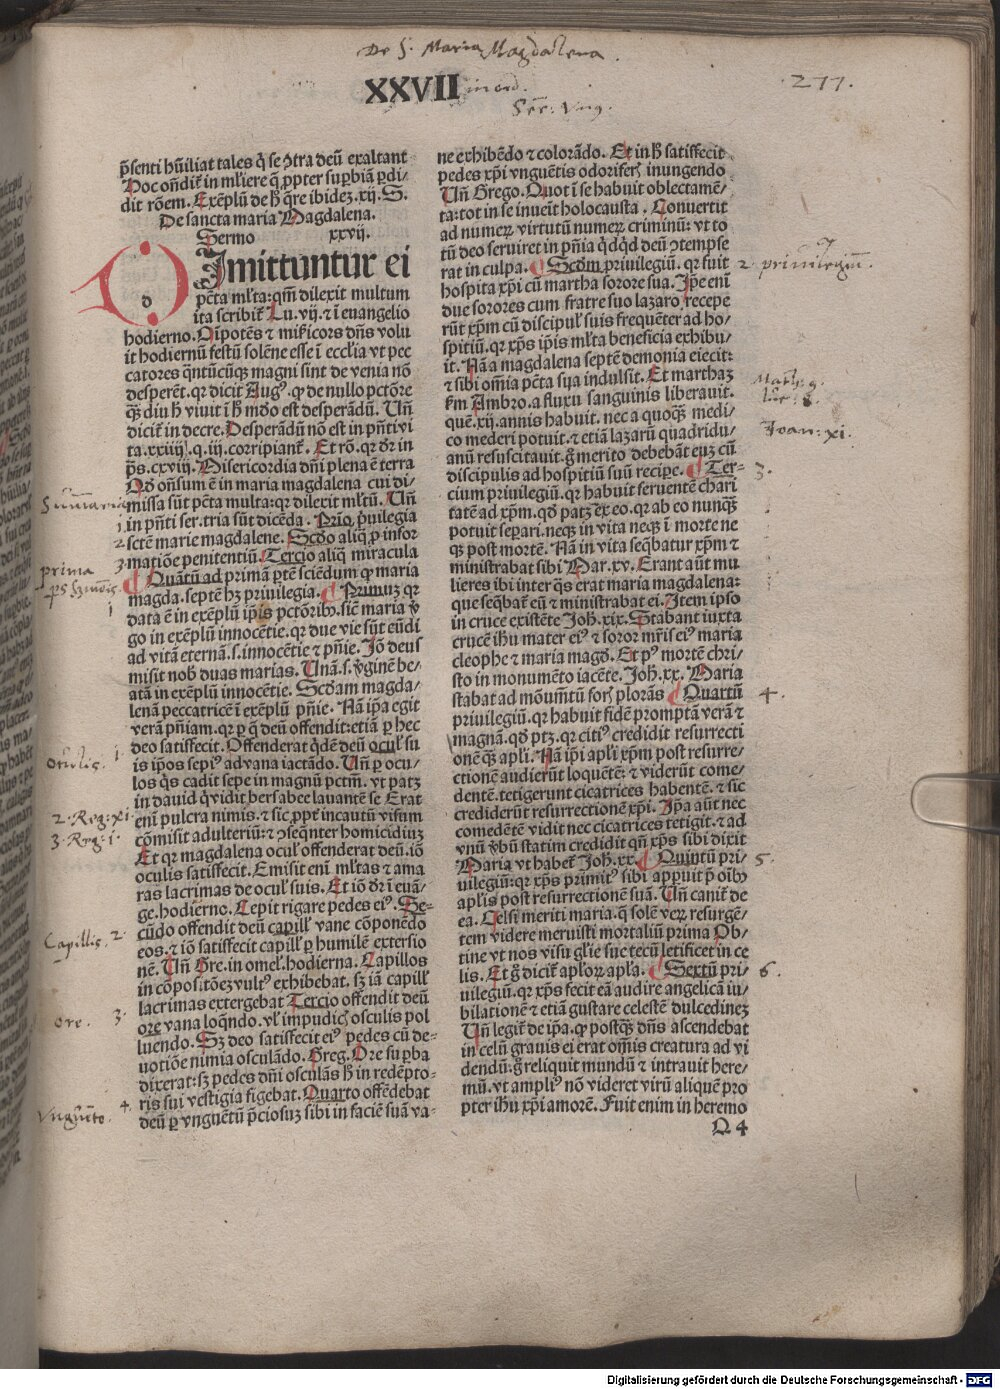 De S. Maria Magdalena.
XXVII in ord.
277.
p̄senti hūiliat tales q̇ se ꝯtra deū exaltant
Hoc oñdit̃ in mĺiere q̄ ꝓpter suꝑbiā ꝑdi/
dit rōem. Exēplū de h̄ q̄re ibidez .xij. S.
De sancta maria Magdalena.
Sermo xxvij.
Dimittuntur ei
pc̄ta mĺta: qm̄ dilexit multum
ita scribit̃ Lu. vij. ⁊ ī euangelio
hodierno. Oīpotēs ⁊ mīcors dn̄s volu
it hodiernū festū solēne esse ī ecclīa vt pec
catores q̄ntūcūqꝫ magni sint de venia nō
desperēt. qꝛ dicit Augꝰ. ꝙ de nullo pctōre
qꝫdiu h̄ viuit ī h̄ mōdo est desperādū. Uñ
dicit̃ in decre. Desperādū nō est in pn̄tivi
ta.xxiiij. q. iij. corripiant̃. Et rō. qꝛ dr̄ in
ps̄. cxviij. Misericordia dn̄i plena ē terra
Qd̄ on̄sum ē in maria magdalena cui di/
missa sūt pc̄ta multa: qꝛ dilexit mĺtū. Uñ
in pn̄ti ser. tria sūt dicēda. Prīo p̄uilegia
sctē marie magdalene. Scd̄o aliq̄ ꝓ infor
matiōe penitentiū. Tercio aliq̄ miracula
Quātū ad primā ꝑtē sciēdum ꝙ maria
magda. septē hꝫ priuilegia. Primuꝫ qꝛ
data ē in exēplū ip̄is pctōribꝫ. sic̄ maria ꝟ
go in exēplū innocētie. qꝛ due vie sūt eūdi
ad vitā eternā. s. innocētie ⁊ pn̄ie. Iō deus
misit nob̄ duas marias. Unā. s. ꝟginē be/
atā in exēplū innocētie. Scd̄am magda/
lenā peccatricē ī exēplū pn̄ie. Nā ip̄a egit
verā pn̄iam. qꝛ ꝑ q̄ deū offendit: etiā ꝑ hec
deo satisfecit. Offenderat q̄dē deū ocuĺ su
is ip̄os sepiꝰ ad vana iactādo. Uñ ꝑ ocu/
los q̄s cadit sepe in magnū pctm̄. vt patꝫ
in dauid q̇ vidit bersabee lauantē se Erat
enī pulcra nimis. ⁊ sic ꝓpt̃ incautū visum
cōmisit adulteriū: ⁊ ꝯseq̄nter homicidiuꝫ
Et qꝛ magdalena ocuĺ offenderat deū. iō
oculis satisfecit. Emisit enī mĺtas ⁊ ama
ras lacrimas de ocuĺ suis. Et iō dr̄ ī euā/
ge. hodierno. Cepit rigare pedes eiꝰ. Se/
cūdo offendit deū capilĺ vane cōponēdo
eos. ⁊ iō satisfecit capilĺ ꝑ humilē extersio
nē. Uñ Gre. in omeĺ. hodierna. Capillos
in cōpositōeꝫ vultꝰ exhibebat. sꝫ iā capilĺ
lacrimas extergebat Tercio offendit deū
ore vana loq̄ndo. vĺ impudic̃ osculis pol
luendo. Sꝫ deo satisfecit eiꝰ pedes cū de/
uotiōe nimia osculādo. Greg. Ore suꝑba
dixerat: sꝫ pedes dn̄i osculās h̄ in redēpto/
ris sui vestigia figebat. Quarto offēdebat
deū ꝑ vnguētū p̄ciosuꝫ sibi in faciē suā va/
ne exhibēdo ⁊ colorādo. Et in h̄ satisfecit
pedes xp̄i vnguētis odoriferꝭ inungendo
Uñ Grego. Quot ī se habuit oblectamē/
ta: tot in se inuēit holocausta. Conuertit
ad numeꝝ virtutū numeꝝ criminū: vt to
tū deo seruiret in pn̄ia q̇dq̇d deū ꝯtempse
rat in culpa. Scd̄m priuilegiū. qꝛ fuit
hospita xp̄i cū martha sorore sua. Ipe enī
due sorores cum fratre suo lazaro recepe
rūt xp̄m cū discipuĺ suis frequēter ad ho/
spitiū. qꝛ xp̄s ip̄is mĺta beneficia exhibu/
it. Nā a magdalena septē demonia eiecit:
⁊ sibi om̄ia pc̄ta sua indulsit. Et marthaꝫ
km̄ Ambro. a fluxu sanguinis liberauit.
quē .xij. annis habuit. nec a quoqꝫ medi/
co mederi potuit. ⁊ etiā lazarū quadridu/
anū resuscitauit. ḡ merito debebāt euꝫ cū
discipulis ad hospitiū suū recipe. Ter/
cium priuilegiū. qꝛ habuit feruentē chari
tatē ad xp̄m. qd̄ patꝫ ex eo. qꝛ ab eo nunqꝫ
potuit separi. neqꝫ in vita neqꝫ ī morte ne
qꝫ post mortē. Nā in vita seq̄batur xp̄m ⁊
ministrabat sibi Mar. xv. Erant aūt mu
lieres ibi inter q̄s erat maria magdalena:
que seq̄bat̃ eū ⁊ ministrabat ei. Item ipso
in cruce existēte Joh. xix. Stabant iuxta
crucē ihu mater eiꝰ ⁊ soror mr̄is eiꝰ maria
cleophe ⁊ maria magd̄. Et pꝰ mortē chri/
sto in monumēto iacēte. Joh. xx. Maria
stabat ad mōumtū foris plorās Quartū
priuilegiū. qꝛ habuit fidē promptā verā ⁊
magnā. qd̄ ptꝫ. qꝛ citiꝰ credidit resurrecti
onē qꝫ apĺi. Nā ip̄i apĺi xp̄m post resurre/
ctionē audierūt loquētē: ⁊ viderūt come/
dentē. tetigerunt cicatrices habentē. ⁊ sic
crediderūt resurrectionē xp̄i. Ip̄a aūt nec
comedētē vidit nec cicatrices tetigit. ⁊ ad
vnū ꝟbū statim credidit qn̄ xp̄s sibi dixit
Maria vt habet̃ Joh. xx. Quintū pri/
uilegiū: qꝛ xp̄s primitꝰ sibi apparuit p̄ oībꝫ
apĺis post resurrectionē suā. Uñ canit̃ de
ea. Celsi meriti maria. q̄ solē veꝝ resurgē/
tem videre meruisti mortaliū prima Ob/
tine vt nos visu glīe sue tecū letificet in ce
lis. Et ḡ dicit̃ apĺoꝝ apĺa. Sextū pri/
uilegiū. qꝛ xp̄s fecit eā audire angelicā iu/
bilationē ⁊ etiā gustare celestē dulcedineꝫ
Uñ legit̃ de ip̄a. ꝙ postqꝫ dn̄s ascendebat
in celū grauis ei erat om̄is creatura ad vi
dendū: ḡ reliquit mundū ⁊ intrauit here/
mū. vt ampliꝰ nō videret virū aliquē pro
pter ihu xp̄i amorē. Fuit enim in heremo
Q 4
Sūmaria
1
2
3
prima
1
oculis. 1.
2. Reg: xi
3. Reg: i.
Capillis. 2
ore. 3
Vngūēto. 4
2 priuilegiū.
Math: 9.
Luc: 8.
Joan: xi.
3.
4.
5.
6.
Digitalisierung gefördert durch die Deutsche Forschungsgemeinschaft - DFG